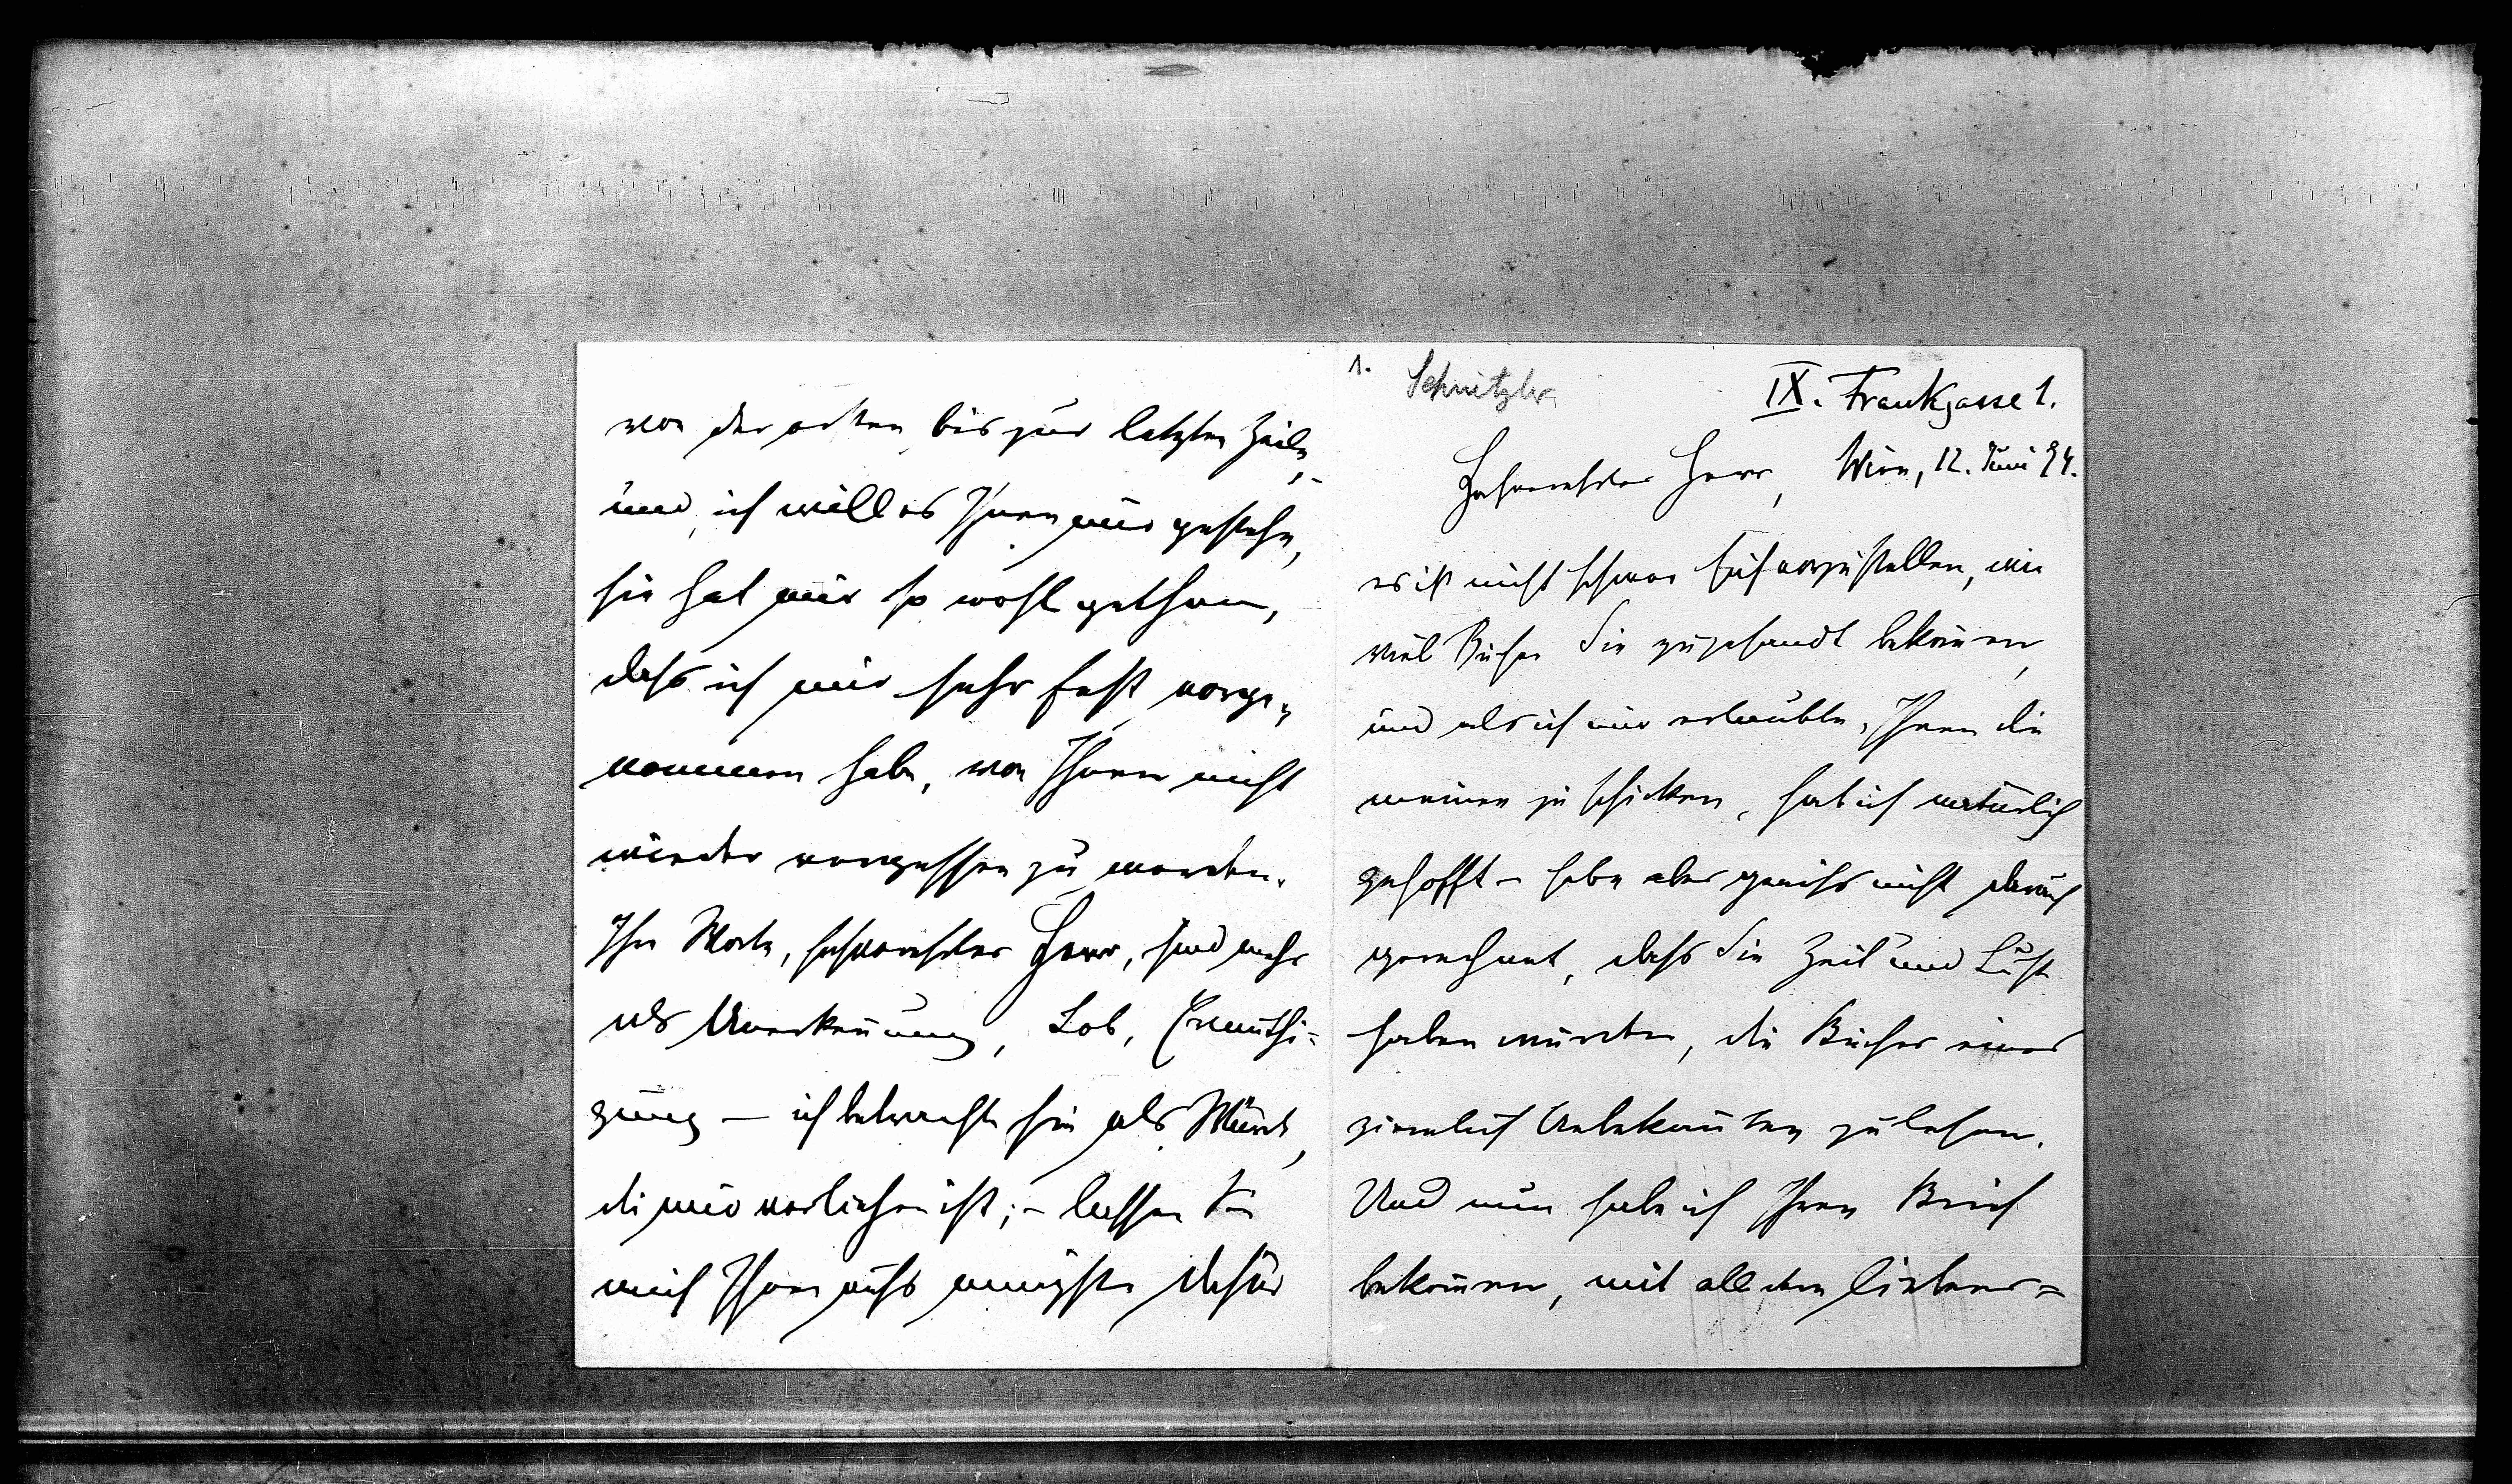 1.
Schnitzler
IX. Frankgasse 1.
Wien, 12. Juni 94.
Hochverehrter Herr,
es ist nicht schwer sich vorzustellen, wie
viel Bücher Sie zugesandt bekom̄en,
und als ich mir erlaubte, Ihnen die
meinen zu schicken, hab ich natürlich
gehofft – habe aber gewiss nicht darauf
gerechnet, dass Sie Zeit und Lust
haben würden, die Bücher eines
ziemlich Unbekan̄ten zu lesen.
Und nun habe ich Ihren Brief
bekom̄en, mit all dem liebens=
von der ersten bis zur letzten Zeile,
und, ich will es Ihnen nur gestehn,
sie hat mir so wohl gethan,
dass ich mir sehr fest vorge=
nommen habe, von Ihnen nicht
wieder vergessen zu werden.
Ihre Worte, hochverehrter Herr, sind mehr
als Anerken̄ung, Lob, Ermuthi=
gung – ich betrachte sie als Würde,
die mir verliehen ist; – lassen Sie
mich Ihnen aufs innigste dafür